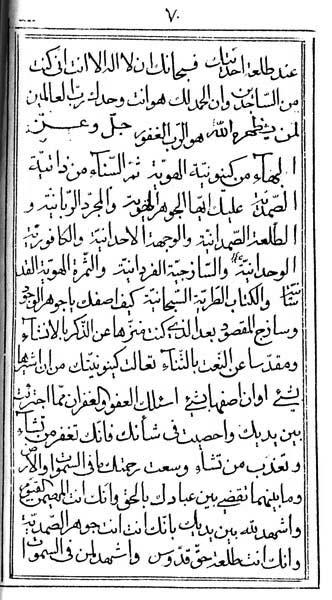 ٧٠
عند طلعة احديتك فسبحانك ان لا اله الا انت انى كنت
من الساجدين وان الحمد لك هو انت وحدك رب العالمين
لمن يظهره الله هو الرب الغفور جل وعز
البهاء من كينونية الهوية ثم السناء من ذاتية
الصمدية عليك ايها الجوهر الهوية والمجرد الربانية و
الطلعة الصمدانية والوجهة الاحدانية والكافورية
الوحدانية والساذجية الفردانية والثمرة الهوية
والكتاب الطرية السبحانية كيف اصفك يا جوهر الوجود
وساذج المقصود بعد الذى كنت منزها عن الذكر بالانشاء
ومقدسا عن النعت بالثناء تعالت كينونيتك من ان اشير ها
بشئ او ان اصفها بشئ اسئلك العفو والغفران مما اجترحت
بين يديك واحصيت فى شأنك فانك تغفر من تشاء
وتعذب من تشاء وسعت رحمتك ما فى السموات والارض
وما بينهما تقضى بين عبادك بالحق وانك انت المهيمن القيوم
واشهد لله بين يديك بانك انت انت جوهر الصمدية
وانك انت طلعة حق قدوس واشهد لمن فى السموات